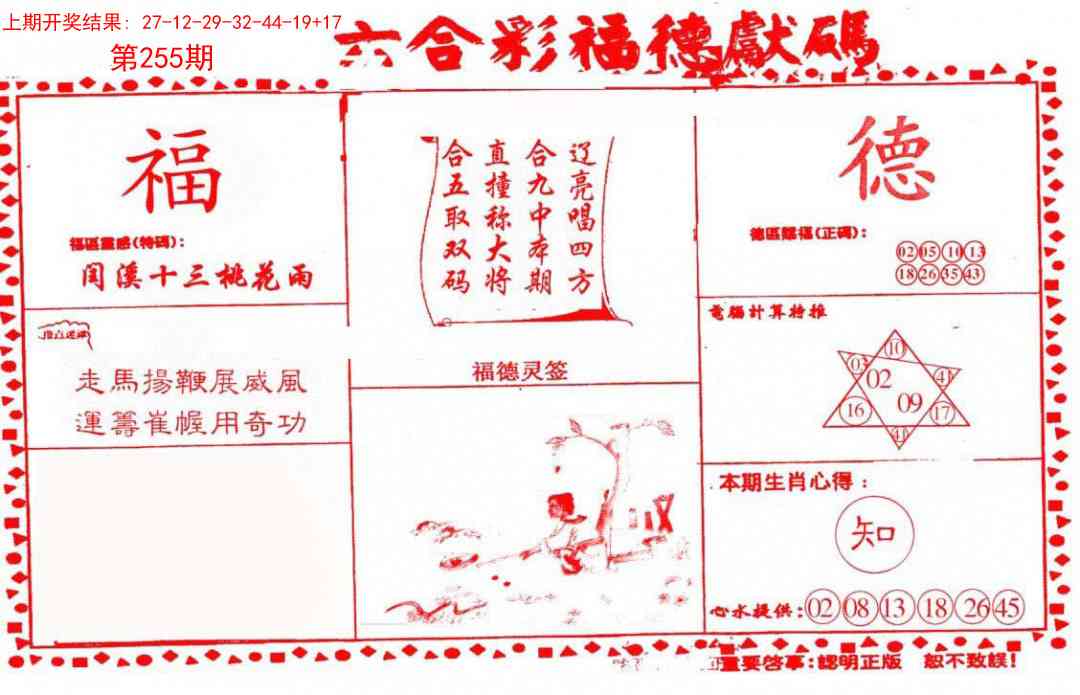 上期开奖结果：27-12-29-32-44-19+17
第255期
六合彩福德獻碼
福
福區靈感(特碼):
闰溪十三桃花雨
走馬揚鞭展威風
運籌崔幄用奇功
辽亮唱四方
合九中本期
直撞称大将
合五取双码
福德灵签
德
德區賜福(正碼):
02 05 10 13
18 26 35 43
電腦計算特推
10
03 41
02
09
16 17
41
本期生肖心得:
知
心水提供:02 08 13 18 26 45
重要啓事:認明正版 恕不致誤!